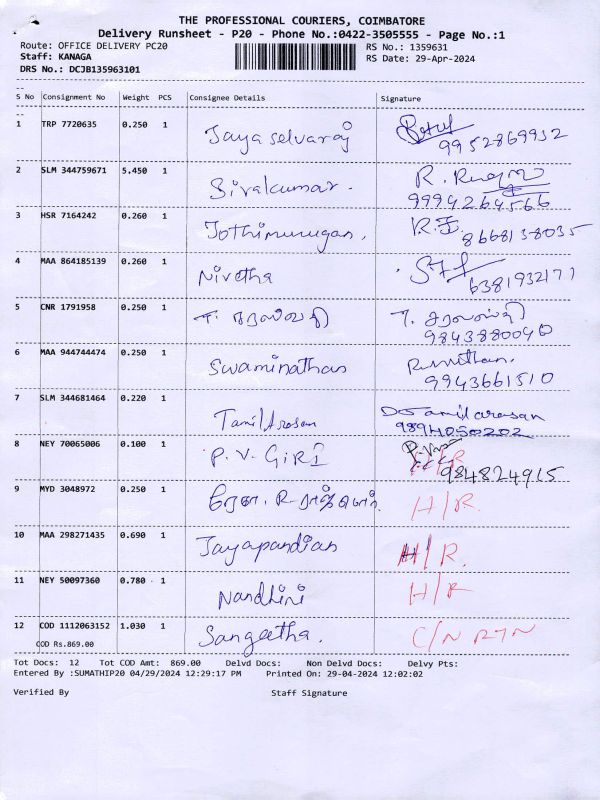 THE PROFESSIONAL COURIERS, COIMBATORE
Delivery Runsheet - P20 - Phone No.:0422-3505555 - Page No.:1
Route: OFFICE DELIVERY PC20
RS No.: 1359631
Staff: KANAGA
RS Date: 29-Apr-2024
DRS No.: DCJB135963101
S No Consignment No Weight PCS Consignee Details Signature
1 TRP 7720635 0.250 1 Jayaselvaraj
9952869932
2 SLM 344759671 5.450 1 Sivakumar.
9994264566
3 HSR 7164242 0.260 1 Jothimurugan.
8668138035
4 MAA 864185139 0.260 1 Nivetha
6381932171
5 CNR 1791958 0.250 1 T. சரஸ்வதி T. சரஸ்வதி
9843880040
6 MAA 944744474 0.250 1 Swaminathan
9943661510
7 SLM 344681464 0.220 1 Tamil Arasan Tamilarasan
9894050202
8 NEY 70065006 0.100 1 P. V. GIRI H/R
984824915
9 MYD 3048972 0.250 1 H/R.
10 MAA 298271435 0.690 1 Jayapandian H/R.
11 NEY 50097360 0.780 1 Nandhini H/R
12 COD 1112063152 1.030 1 Sangeetha. C/N RTN
COD Rs.869.00
Tot Docs: 12 Tot COD Amt: 869.00 Delvd Docs: Non Delvd Docs: Delvy Pts:
Entered By :SUMATHIP20 04/29/2024 12:29:17 PM Printed On: 29-04-2024 12:02:02
Verified By Staff Signature